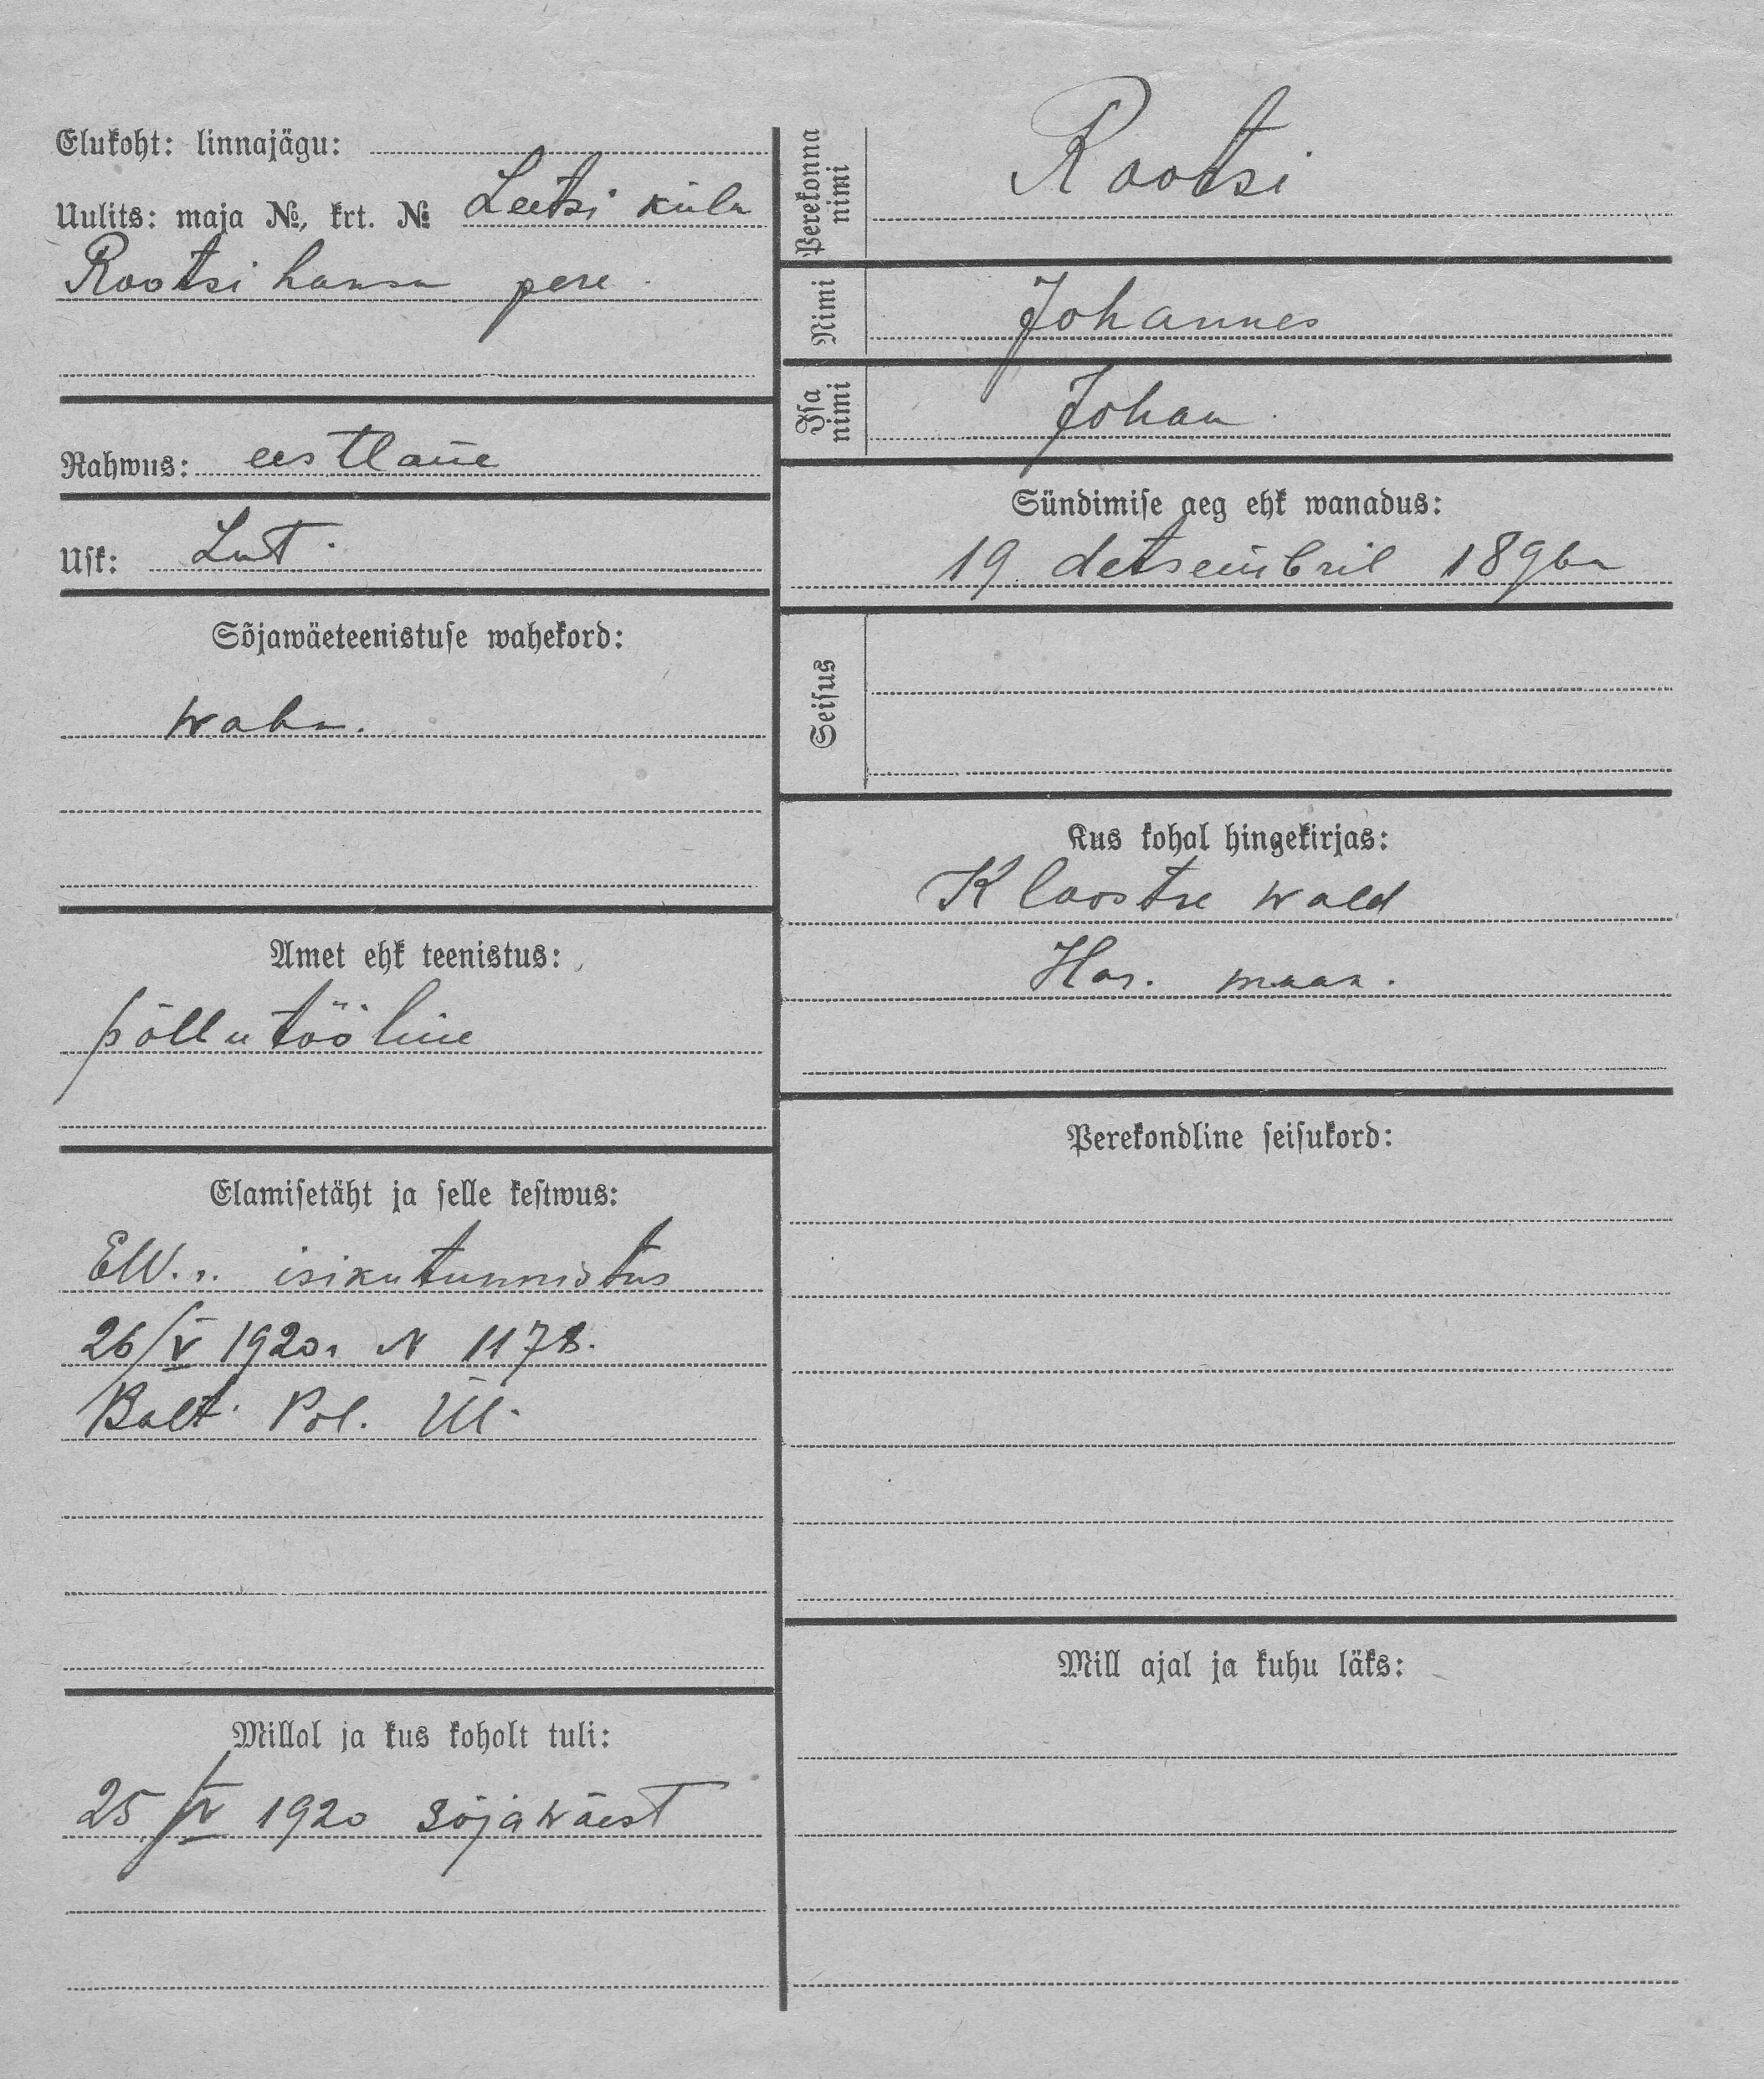 Elukoht: linnajägu:
Uulits: maja №, krt. № Leetsi küla
Rootsi hansu pere.
Rahwus: eestlane
Usk: Lut.
Sõjawäeteenistuse wahekord:
waba.
Amet ehk teenistus:
põllutööline
Elamisetäht ja selle kestwus:
EW. isikutunnistus
26/V 1920. N 1178.
Balt. Pol. Ül.
Millal ja kus kohalt tuli:
25/IV 1920 sõjawäest
Perekonna nimi Rootsi
Nimi Johannes
Isa nimi Johan
Sündimise aeg ehk wanadus:
19. detsembril 1896a
Seisus
Kus kohal hingekirjas:
Kloostre wald
Har. maa.
Perekondline seisukord:
Mill ajal ja kuhu läks: